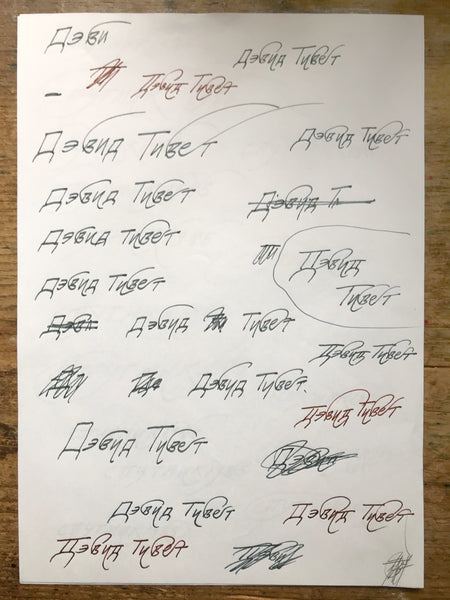 Дэви
Дэвид Тивет
Дэвид Тивет
Дэвид Тивет
Дэвид Тивет
Дэвид Тивет
Дэвид Т
Дэвид Тивет
Дэвид
Тивет
Дэвид Тивет
Дэвид Тивет
Дэвид Тивет
Дэвид Тивет
Дэвид Тивет
Дэвид Тивет
Дэвид Тивет
Дэвид Тивет
Дэвид Тивет